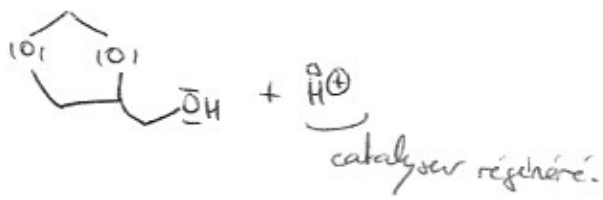 |O| |O|
OH + H⊕
catalyseur régénéré.